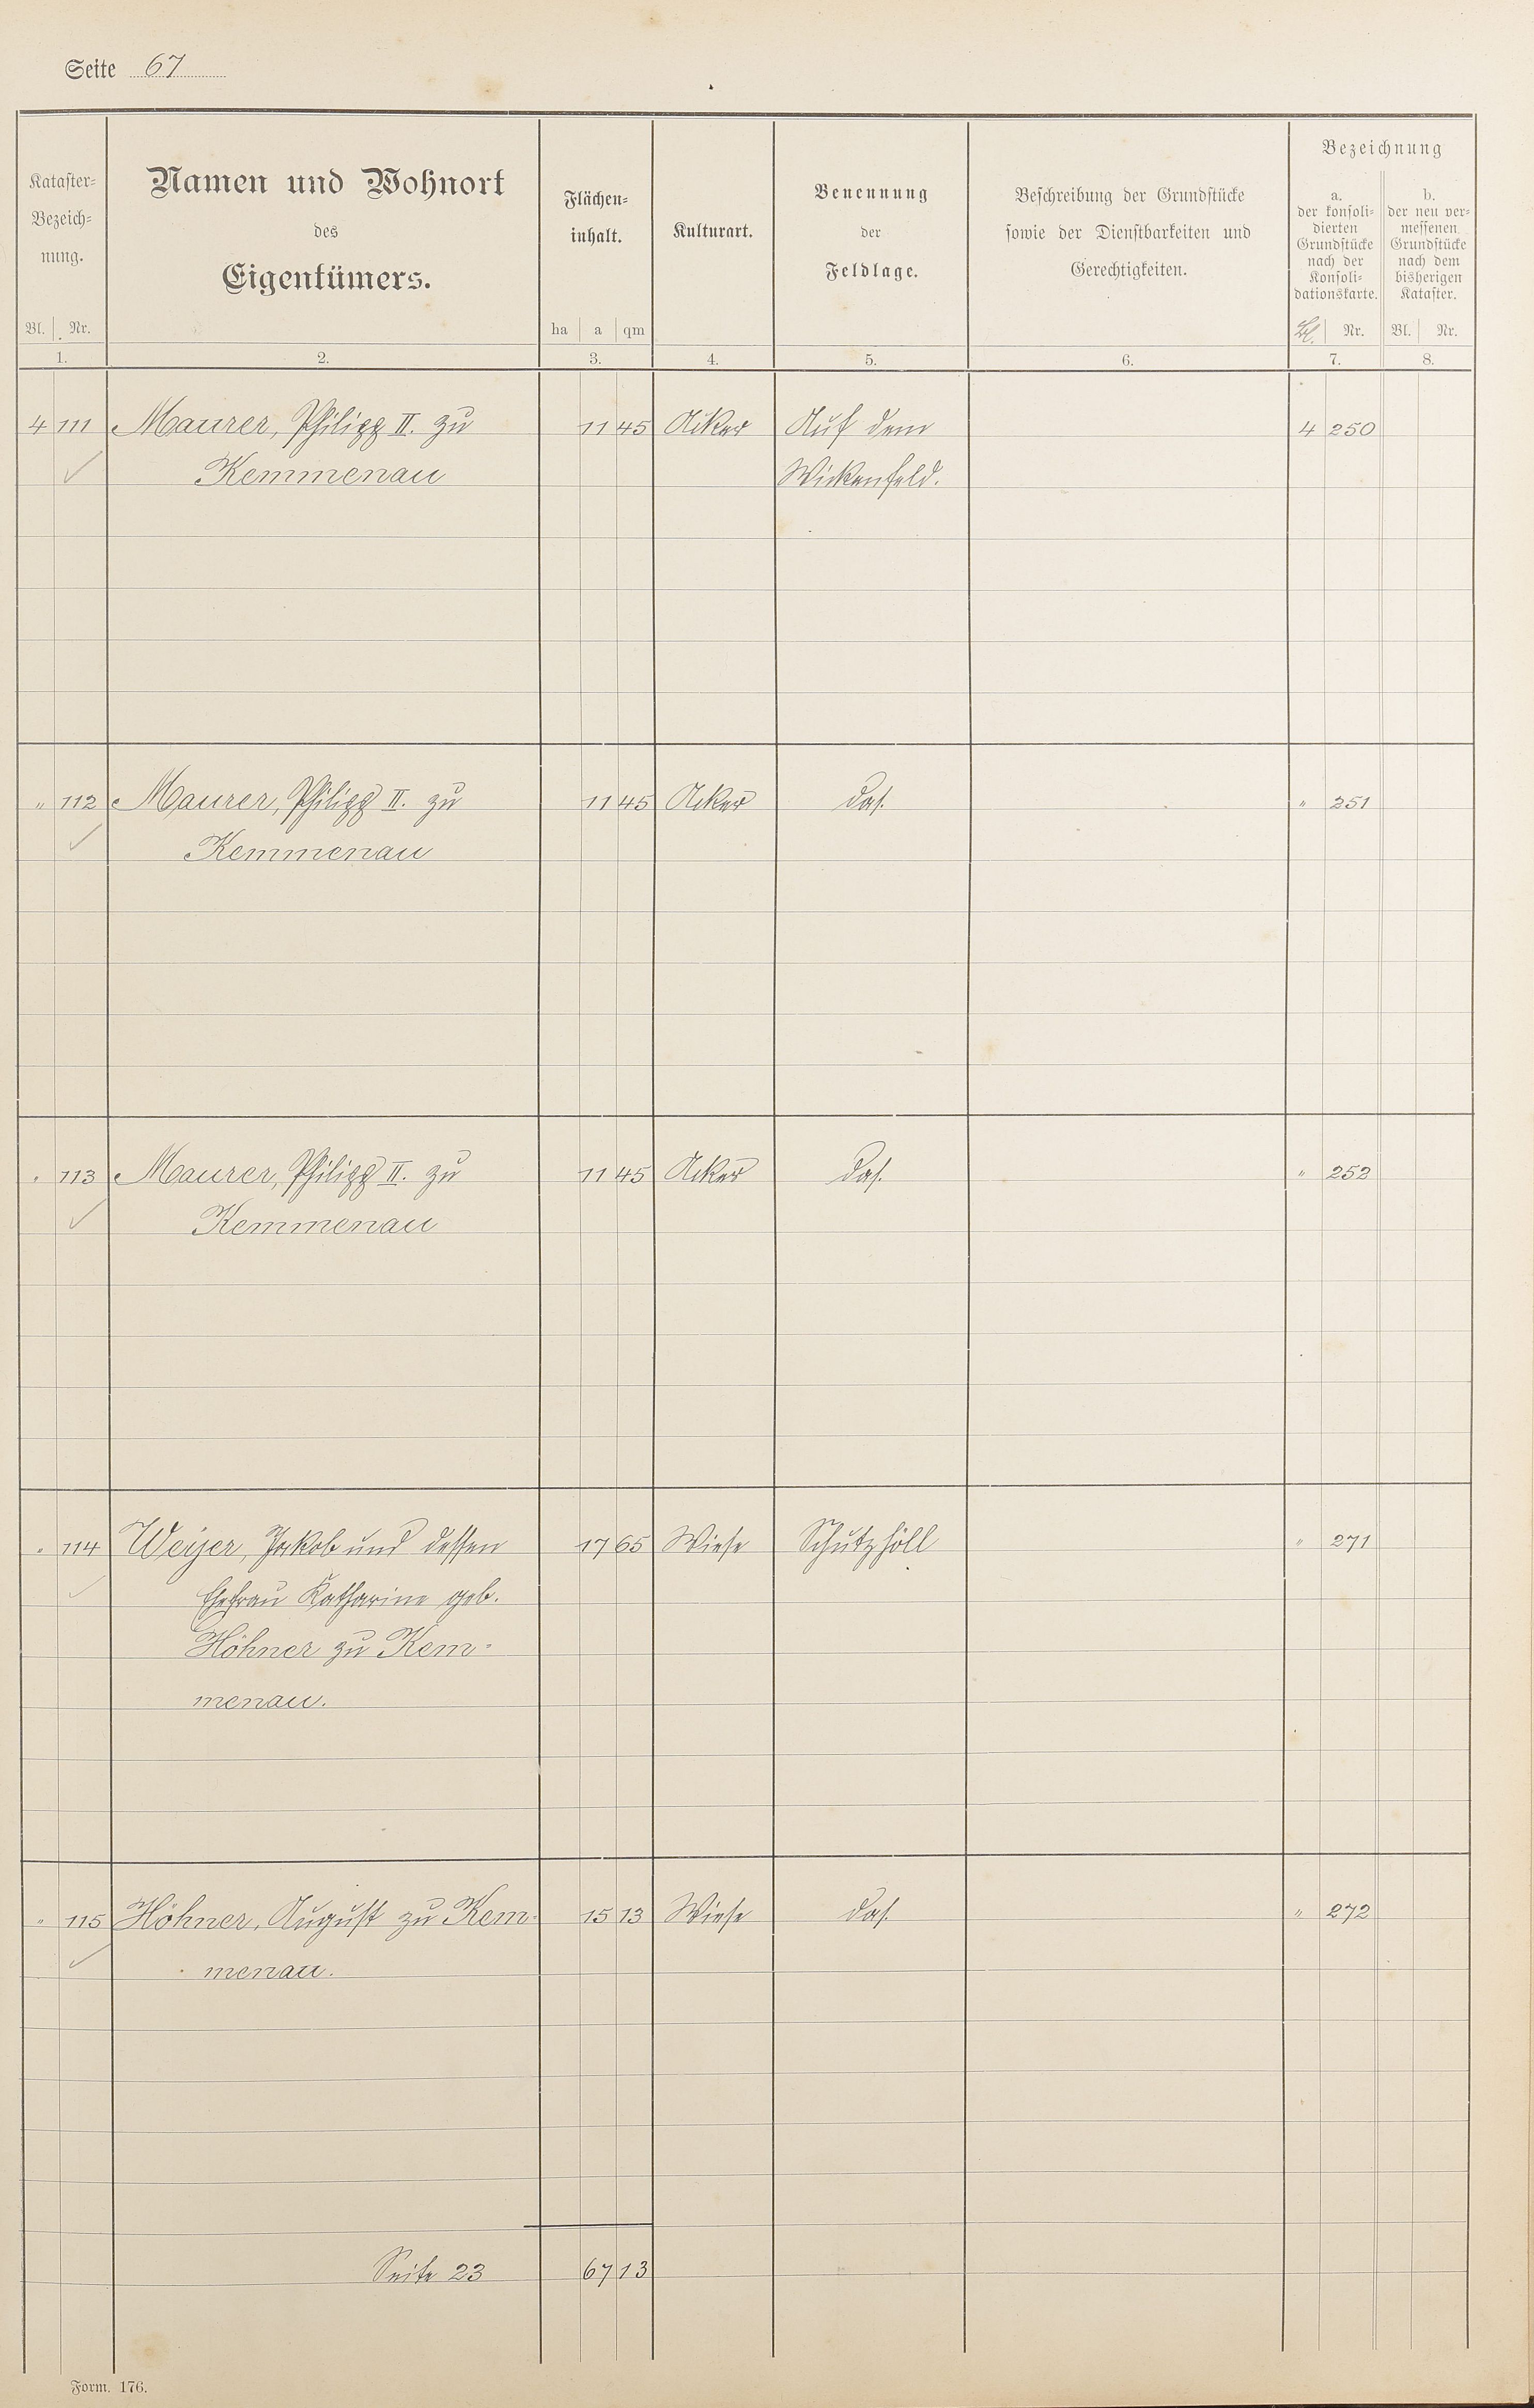 Seite 67
Kataster=
Bezeich=
nung.
Bl. Nr.
1.
Namen und Wohnort
des
Eigentümers.
2.
Flächen=
inhalt.
ha a qm
3.
Kulturart.
4.
Benennung
der
Feldlage.
5.
Beschreibung der Grundstücke
sowie der Dienstbarkeiten und
Gerechtigkeiten.
6.
Bezeichnung
a.
der konsoli=
dierten
Grundstücke
nach der
Konsoli=
dationskarte.
Bl. Nr.
7.
b.
der neu ver=
messenen
Grundstücke
nach dem
bisherigen
Kataster.
Bl. Nr.
8.
4 111 Maurer, Philipp II. zu 11 45 Acker Auf dem 4 250
Kemmenau Wickenfeld.
" 112 Maurer, Philipp II. zu 11 45 Acker das. " 251
Kemmenau
" 113 Maurer, Philipp II. zu 11 45 Acker das. " 252
Kemmenau
" 114 Weijer, Jakob und dessen 17 65 Wiese Schutzhöll " 271
Ehefrau Katharine geb.
Höhner zu Kem=
menau.
" 115 Höhner, August zu Kem= 15 13 Wiese das. " 272
menau.
Seite 23 67 13
Form. 176.